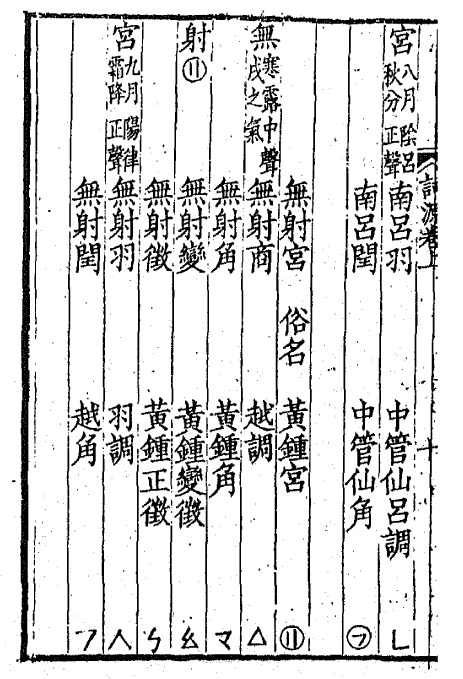 詞源卷上 十
宮 八月 陰呂 秋分 正聲 南呂羽 中管仙呂調 ㄴ
南呂閏 中管仙角 ㋫
無射宮 俗名 黃鍾宮 ⑪
無 寒露中聲 戌之氣 無射商 越調 △
無射角 黃鍾角 マ
射 ⑪ 無射變 黃鍾變徵
無射徵 黃鍾正徵 ㄣ
宮 九月 陽律 霜降 正聲 無射羽 羽調 人
無射閏 越角 フ